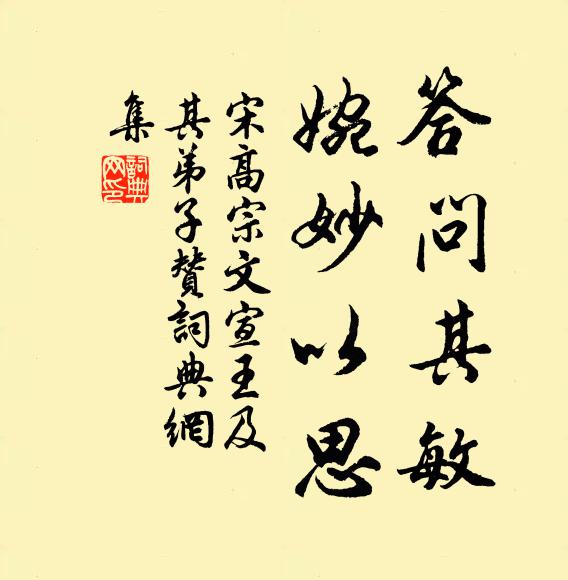 答问其敏
婉妙以思
宋高宗文宣王及
其弟子赞詞典網
集
詞典网印